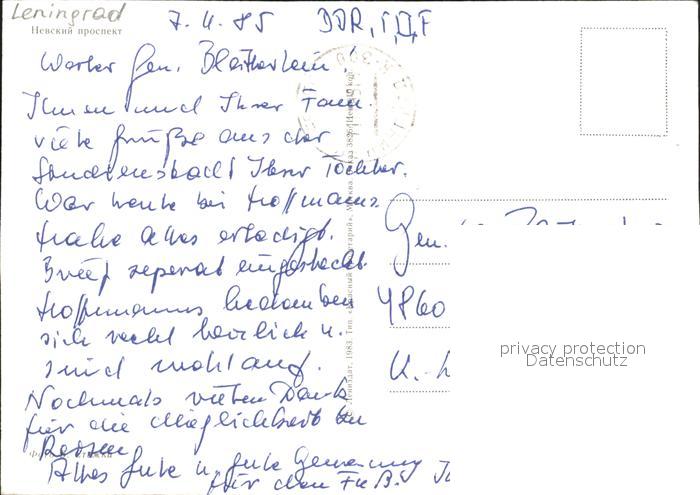 Leningrad
Невский проспект
7. 4. 85 DDR,
Werter Gen.
Ihnen und Ihrer Fam.
viele Grüße aus der
Studentenstadt Ihrer Tochter.
War heute bei Hoffmanns.
Habe Alles erledigt.
Brief seperat eingesteckt.
Hoffmanns bedanken
sich recht herzlich u.
sind wohlauf.
Nochmals vielen Dank
für die Möglichkeit zu
Reisen
Alles Gute u. gute Genesung
für den Fuß.
Gen.
4860
privacy protection
Datenschutz